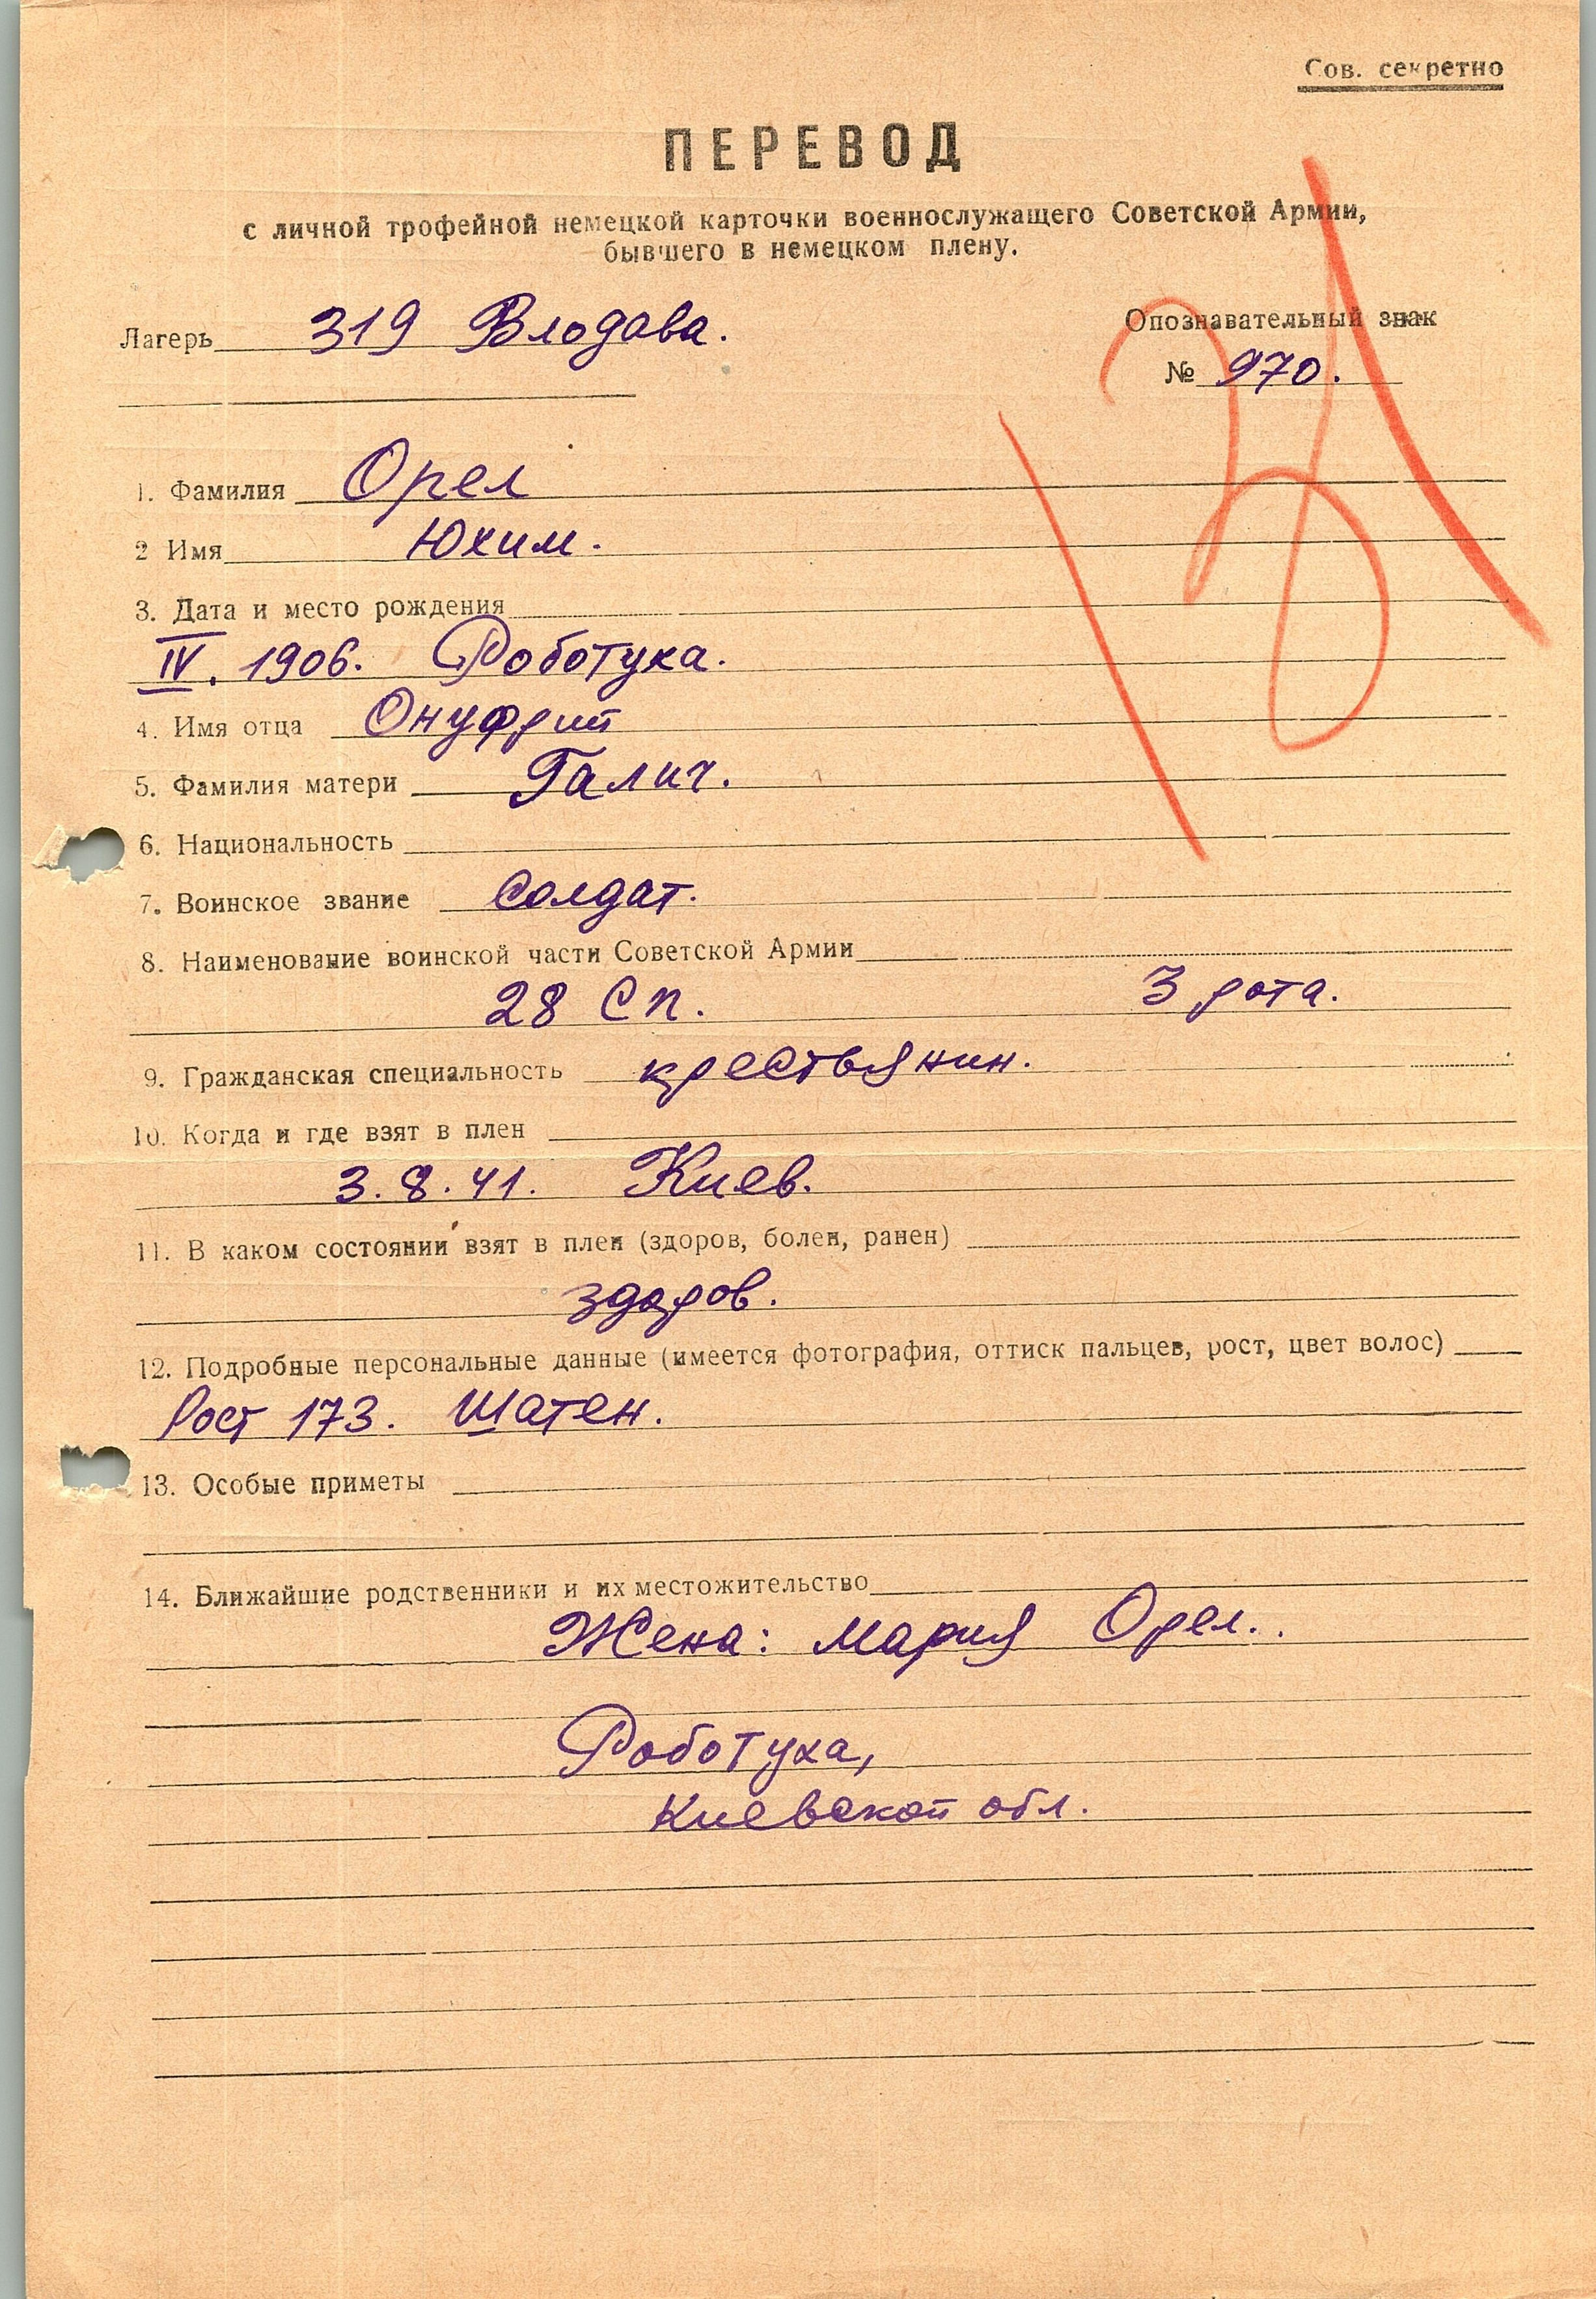 Сов. секретно
ПЕРЕВОД
с личной трофейной немецкой карточки военнослужащего Советской Армии,
бывшего в немецком плену.
Лагерь 319 Влодава.
Опознавательный знак
№ 970.
1. Фамилия Орел
2 Имя Юхим.
3. Дата и место рождения
IV. 1906. Роботуха.
4. Имя отца Онуфрий
5. Фамилия матери Галич.
6. Национальность
7. Воинское звание Солдат.
8. Наименование воинской части Советской Армии
28 Сп. 3 рота.
9. Гражданская специальность крестьянин.
10. Когда и где взят в плен
3.8.41. Киев.
11. В каком состоянии взят в плен (здоров, болен, ранен)
здоров.
12. Подробные персональные данные (имеется фотография, оттиск пальцев, рост, цвет волос)
Рост 173. Шатен.
13. Особые приметы
14. Ближайшие родственники и их местожительство
Жена: Мария Орел.
Роботуха,
Киевской обл.